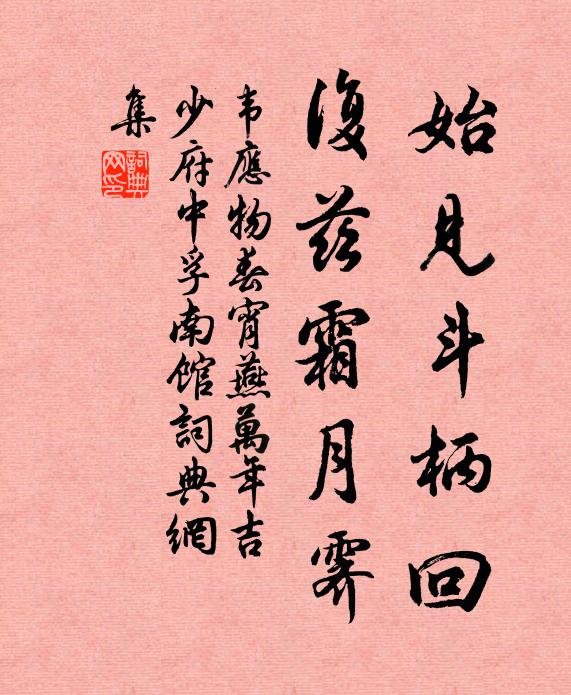 始見斗柄回
復茲霜月霽
韦應物春宵燕萬年吉
少府中孚南館詞典網
集
詞典
网印